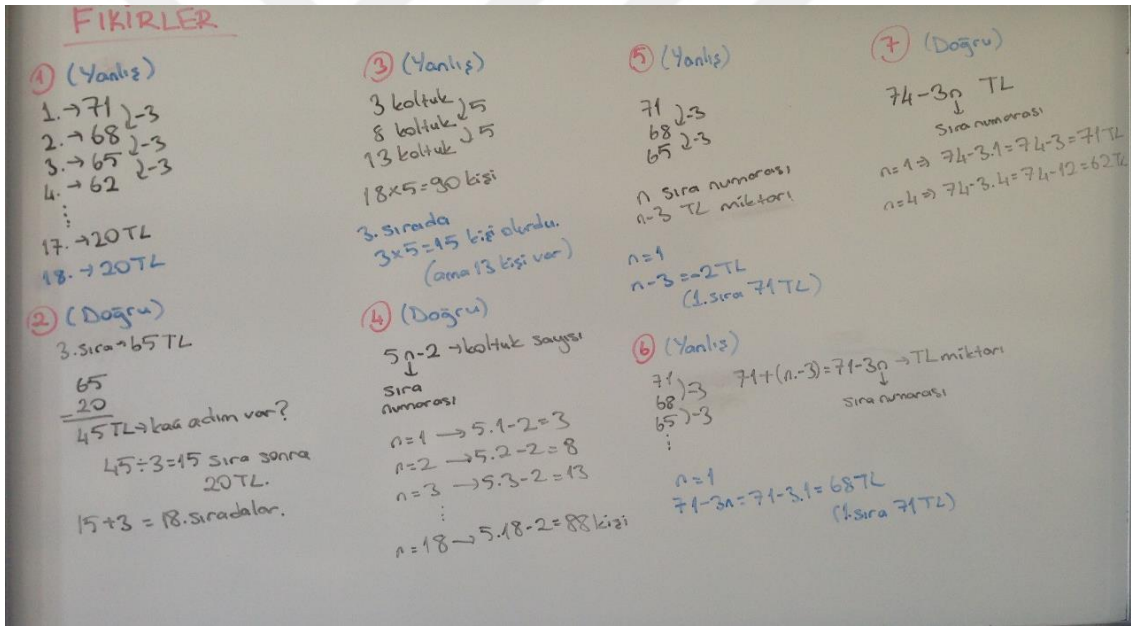 FIKIRLER
1 (Yanlış)
1. → 71
-3
2. → 68
-3
3. → 65
-3
4. → 62
⋮
17. → 20 TL
18. → 20 TL
2 (Doğru)
3. sıra → 65 TL
65
- 20
45 TL → kaç adım var?
45 ÷ 3 = 15 sıra sonra
20 TL.
15 + 3 = 18. sıradalar.
3 (Yanlış)
3 koltuk
5
8 koltuk
5
13 koltuk
18 x 5 = 90 kişi
3. sırada
3 x 5 = 15 kişi olurdu.
(ama 13 kişi var)
4 (Doğru)
5n-2 → koltuk sayısı
↓
sıra
numarası
n=1 → 5.1-2=3
n=2 → 5.2-2=8
n=3 → 5.3-2=13
⋮
n=18 → 5.18-2=88 kişi
5 (Yanlış)
71
-3
68
-3
65
n sıra numarası
n-3 TL miktarı
n=1
n-3=-2 TL
(1. sıra 71 TL)
6 (Yanlış)
71
-3
68
-3
65
⋮
71+(n.-3)=71-3n → TL miktarı
↓
sıra numarası
n=1
71-3n=71-3.1=68 TL
(1. sıra 71 TL)
7 (Doğru)
74-3n TL
↓
Sıra numarası
n=1 ⇒ 74-3.1=74-3=71 TL
n=4 ⇒ 74-3.4=74-12=62 TL